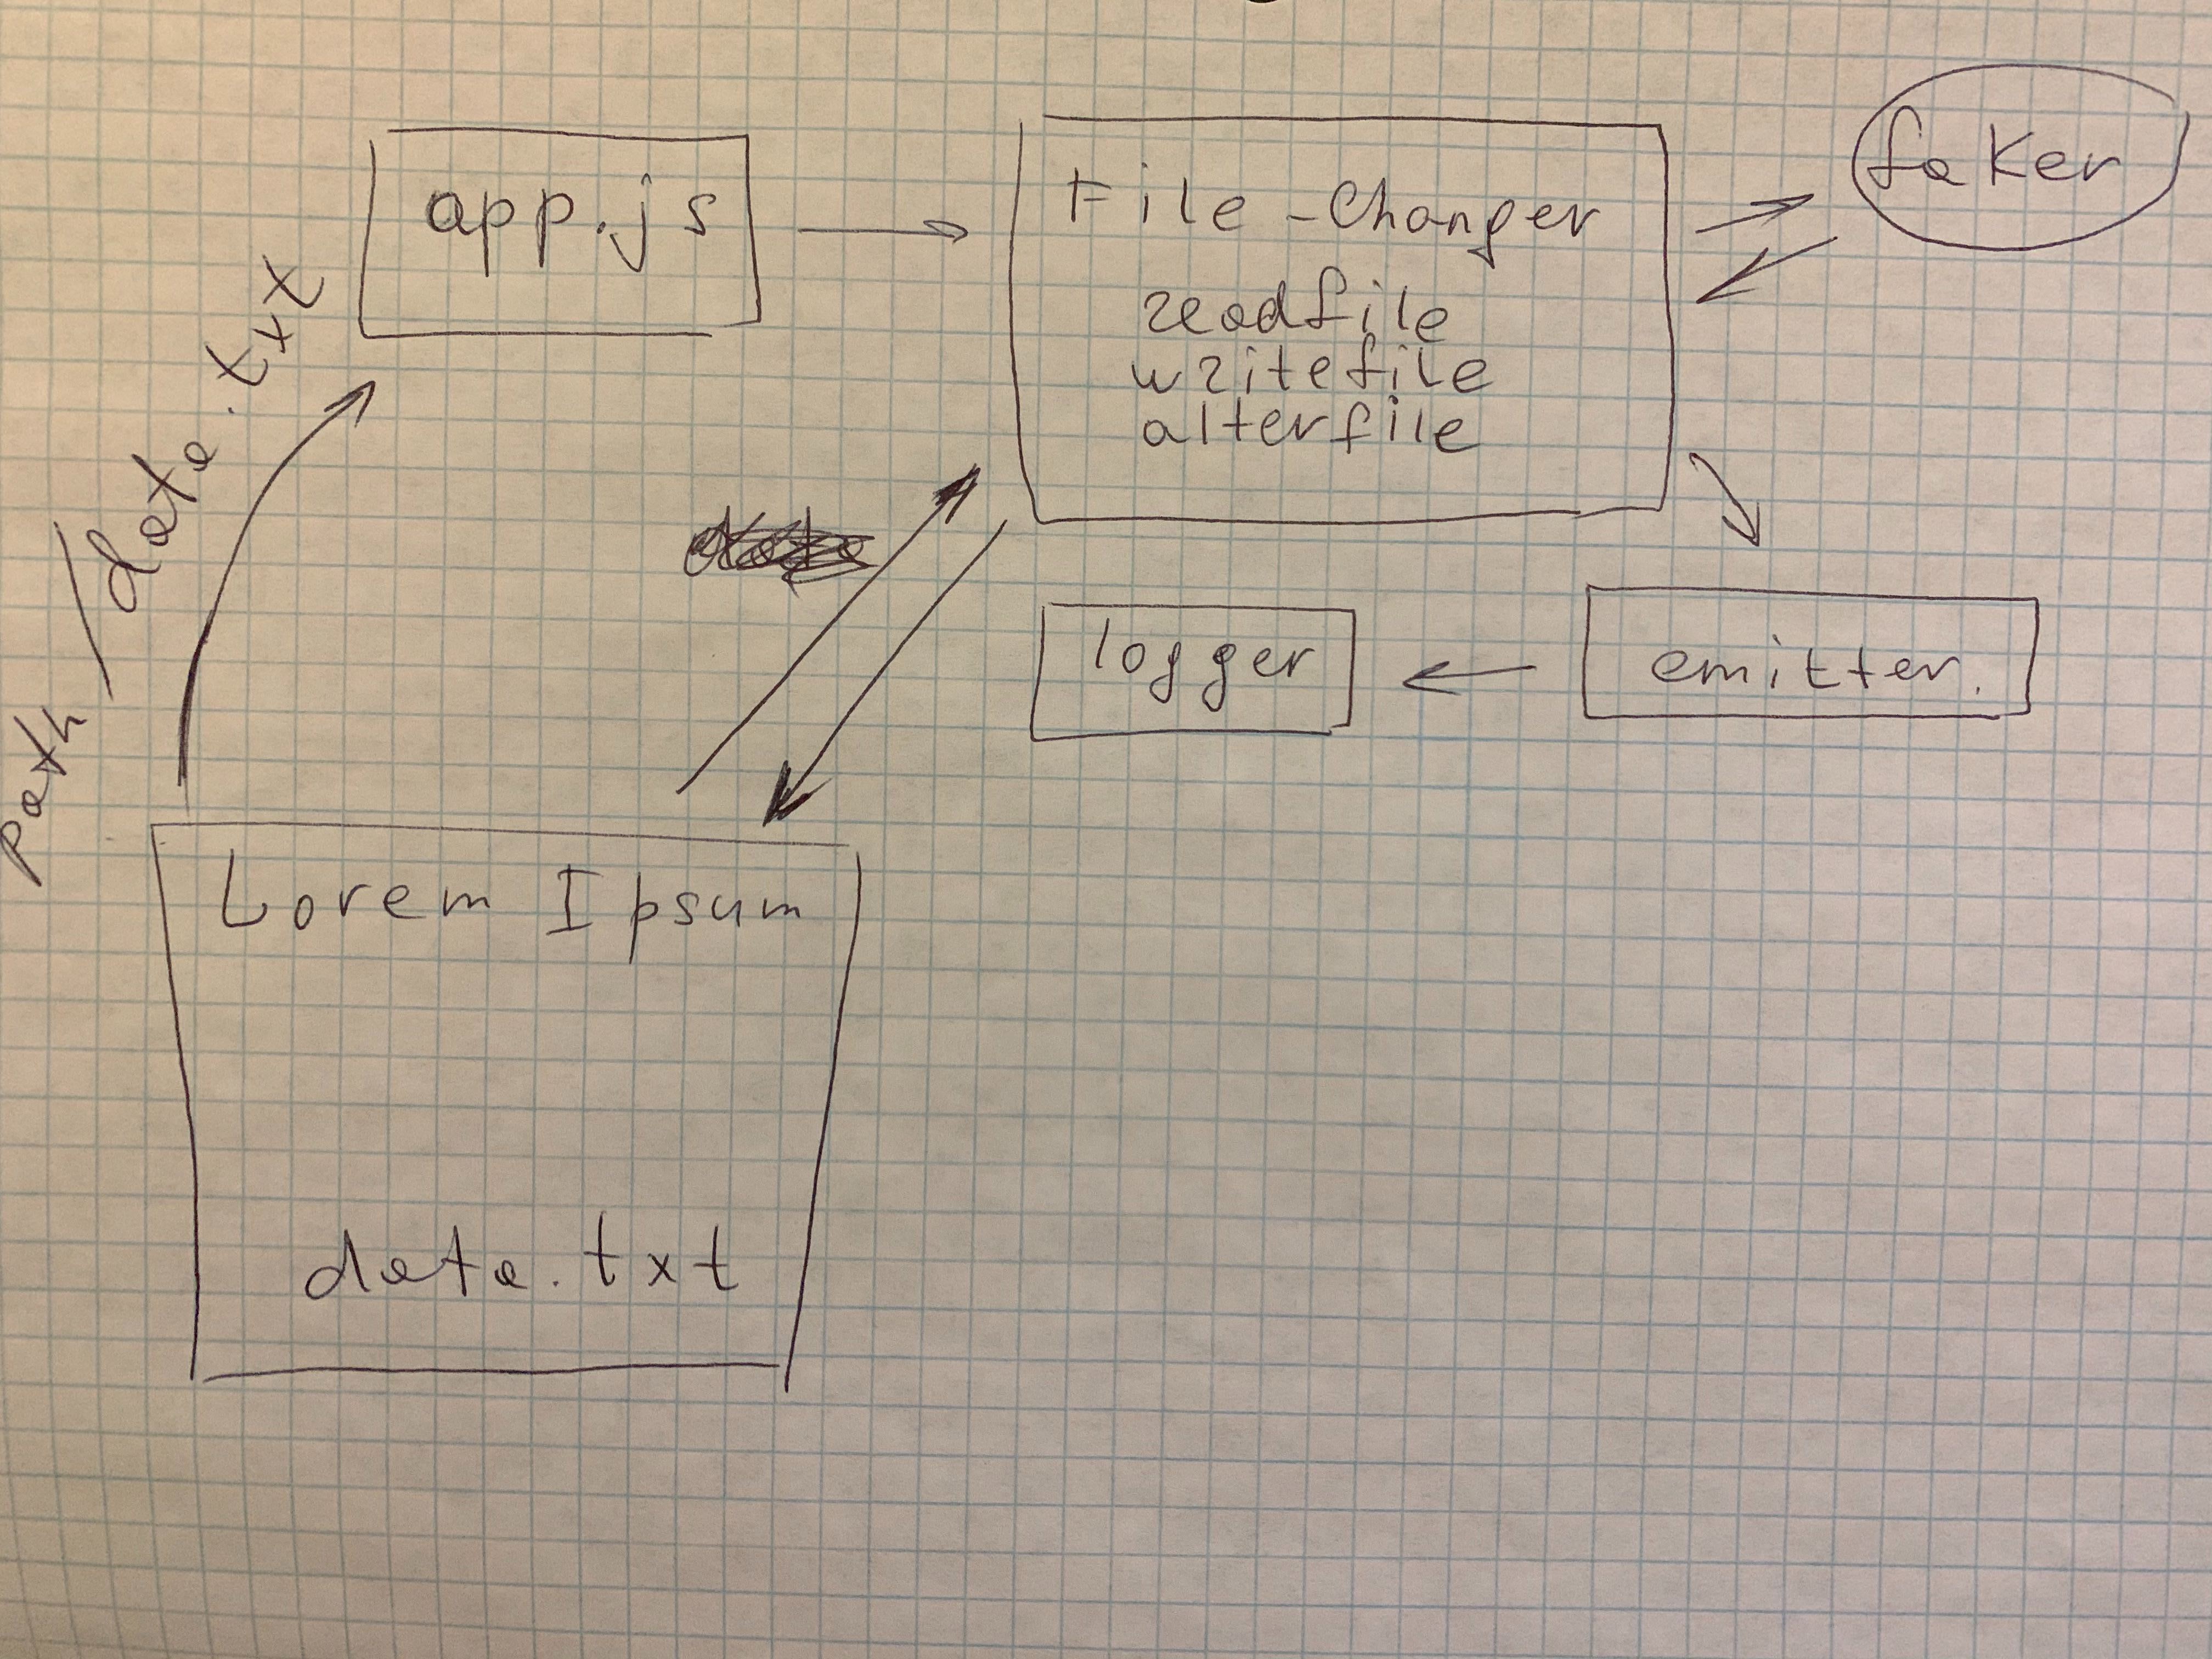 app.js
File-Changer
readfile
writefile
alterfile
faker
path / data.txt
logger
emitter.
Lorem Ipsum
data.txt